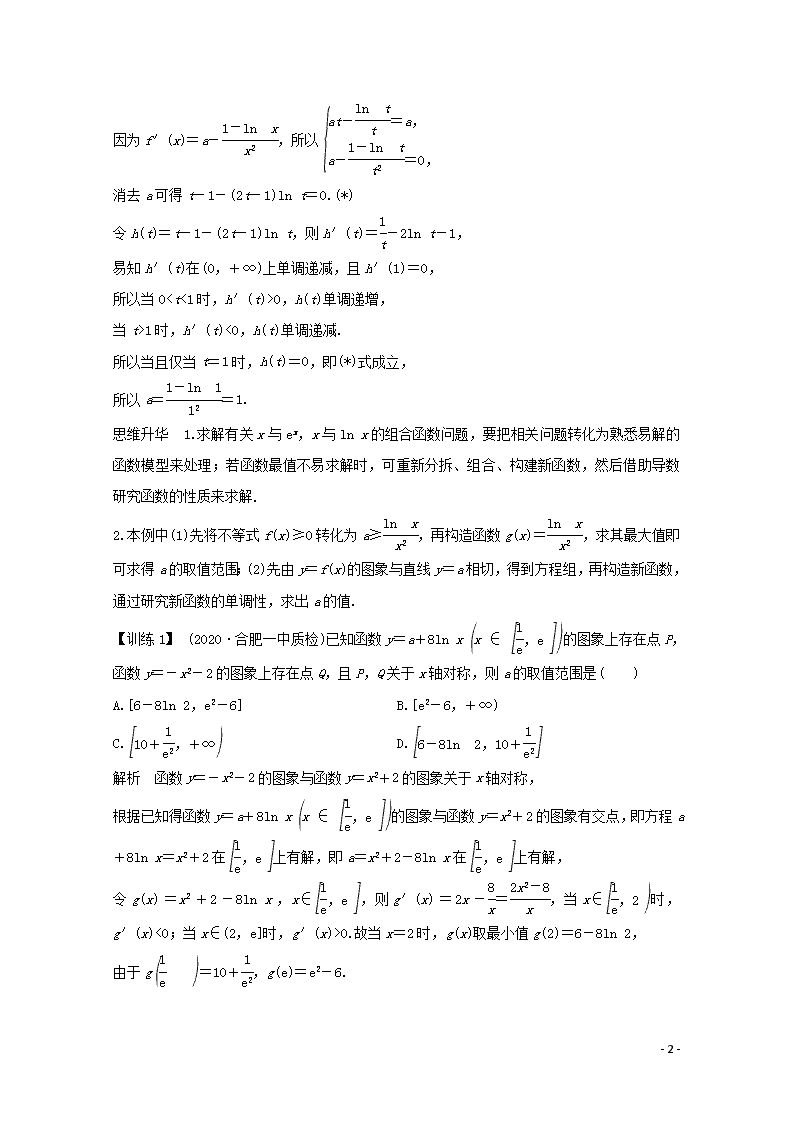 因为 f′(x)=a-(1-ln x)/x²,所以{at-(ln t)/t=a, a-(1-ln t)/t²=0,
消去 a 可得 t-1-(2t-1)ln t=0.(*)
令 h(t)=t-1-(2t-1)ln t,则 h′(t)=1/t-2ln t-1,
易知 h′(t)在(0,+∞)上单调递减,且 h′(1)=0,
所以当 0<t<1 时,h′(t)>0,h(t)单调递增,
当 t>1 时,h′(t)<0,h(t)单调递减.
所以当且仅当 t=1 时,h(t)=0,即(*)式成立,
所以 a=(1-ln 1)/1²=1.
思维升华 1.求解有关 x 与 eˣ,x 与 ln x 的组合函数问题,要把相关问题转化为熟悉易解的
函数模型来处理;若函数最值不易求解时,可重新分拆、组合、构建新函数,然后借助导数
研究函数的性质来求解.
2.本例中(1)先将不等式 f(x)≥0 转化为 a≥(ln x)/x²,再构造函数 g(x)=(ln x)/x²,求其最大值即
可求得 a 的取值范围;(2)先由 y=f(x)的图象与直线 y=a 相切,得到方程组,再构造新函数,
通过研究新函数的单调性,求出 a 的值.
【训练 1】 (2020·合肥一中质检)已知函数 y=a+8ln x (x∈[1/e,e])的图象上存在点 P,
函数 y=-x²-2 的图象上存在点 Q,且 P,Q 关于 x 轴对称,则 a 的取值范围是( )
A.[6-8ln 2,e²-6] B.[e²-6,+∞)
C.[10+1/e²,+∞) D.[6-8ln 2,10+1/e²]
解析 函数 y=-x²-2 的图象与函数 y=x²+2 的图象关于 x 轴对称,
根据已知得函数 y=a+8ln x (x∈[1/e,e])的图象与函数 y=x²+2 的图象有交点,即方程 a
+8ln x=x²+2 在[1/e,e]上有解,即 a=x²+2-8ln x 在[1/e,e]上有解,
令 g(x)=x²+2-8ln x,x∈[1/e,e],则 g′(x)=2x-8/x=(2x²-8)/x,当 x∈[1/e,2)时,
g′(x)<0;当 x∈(2,e]时,g′(x)>0.故当 x=2 时,g(x)取最小值 g(2)=6-8ln 2,
由于 g(1/e)=10+1/e²,g(e)=e²-6.
- 2 -